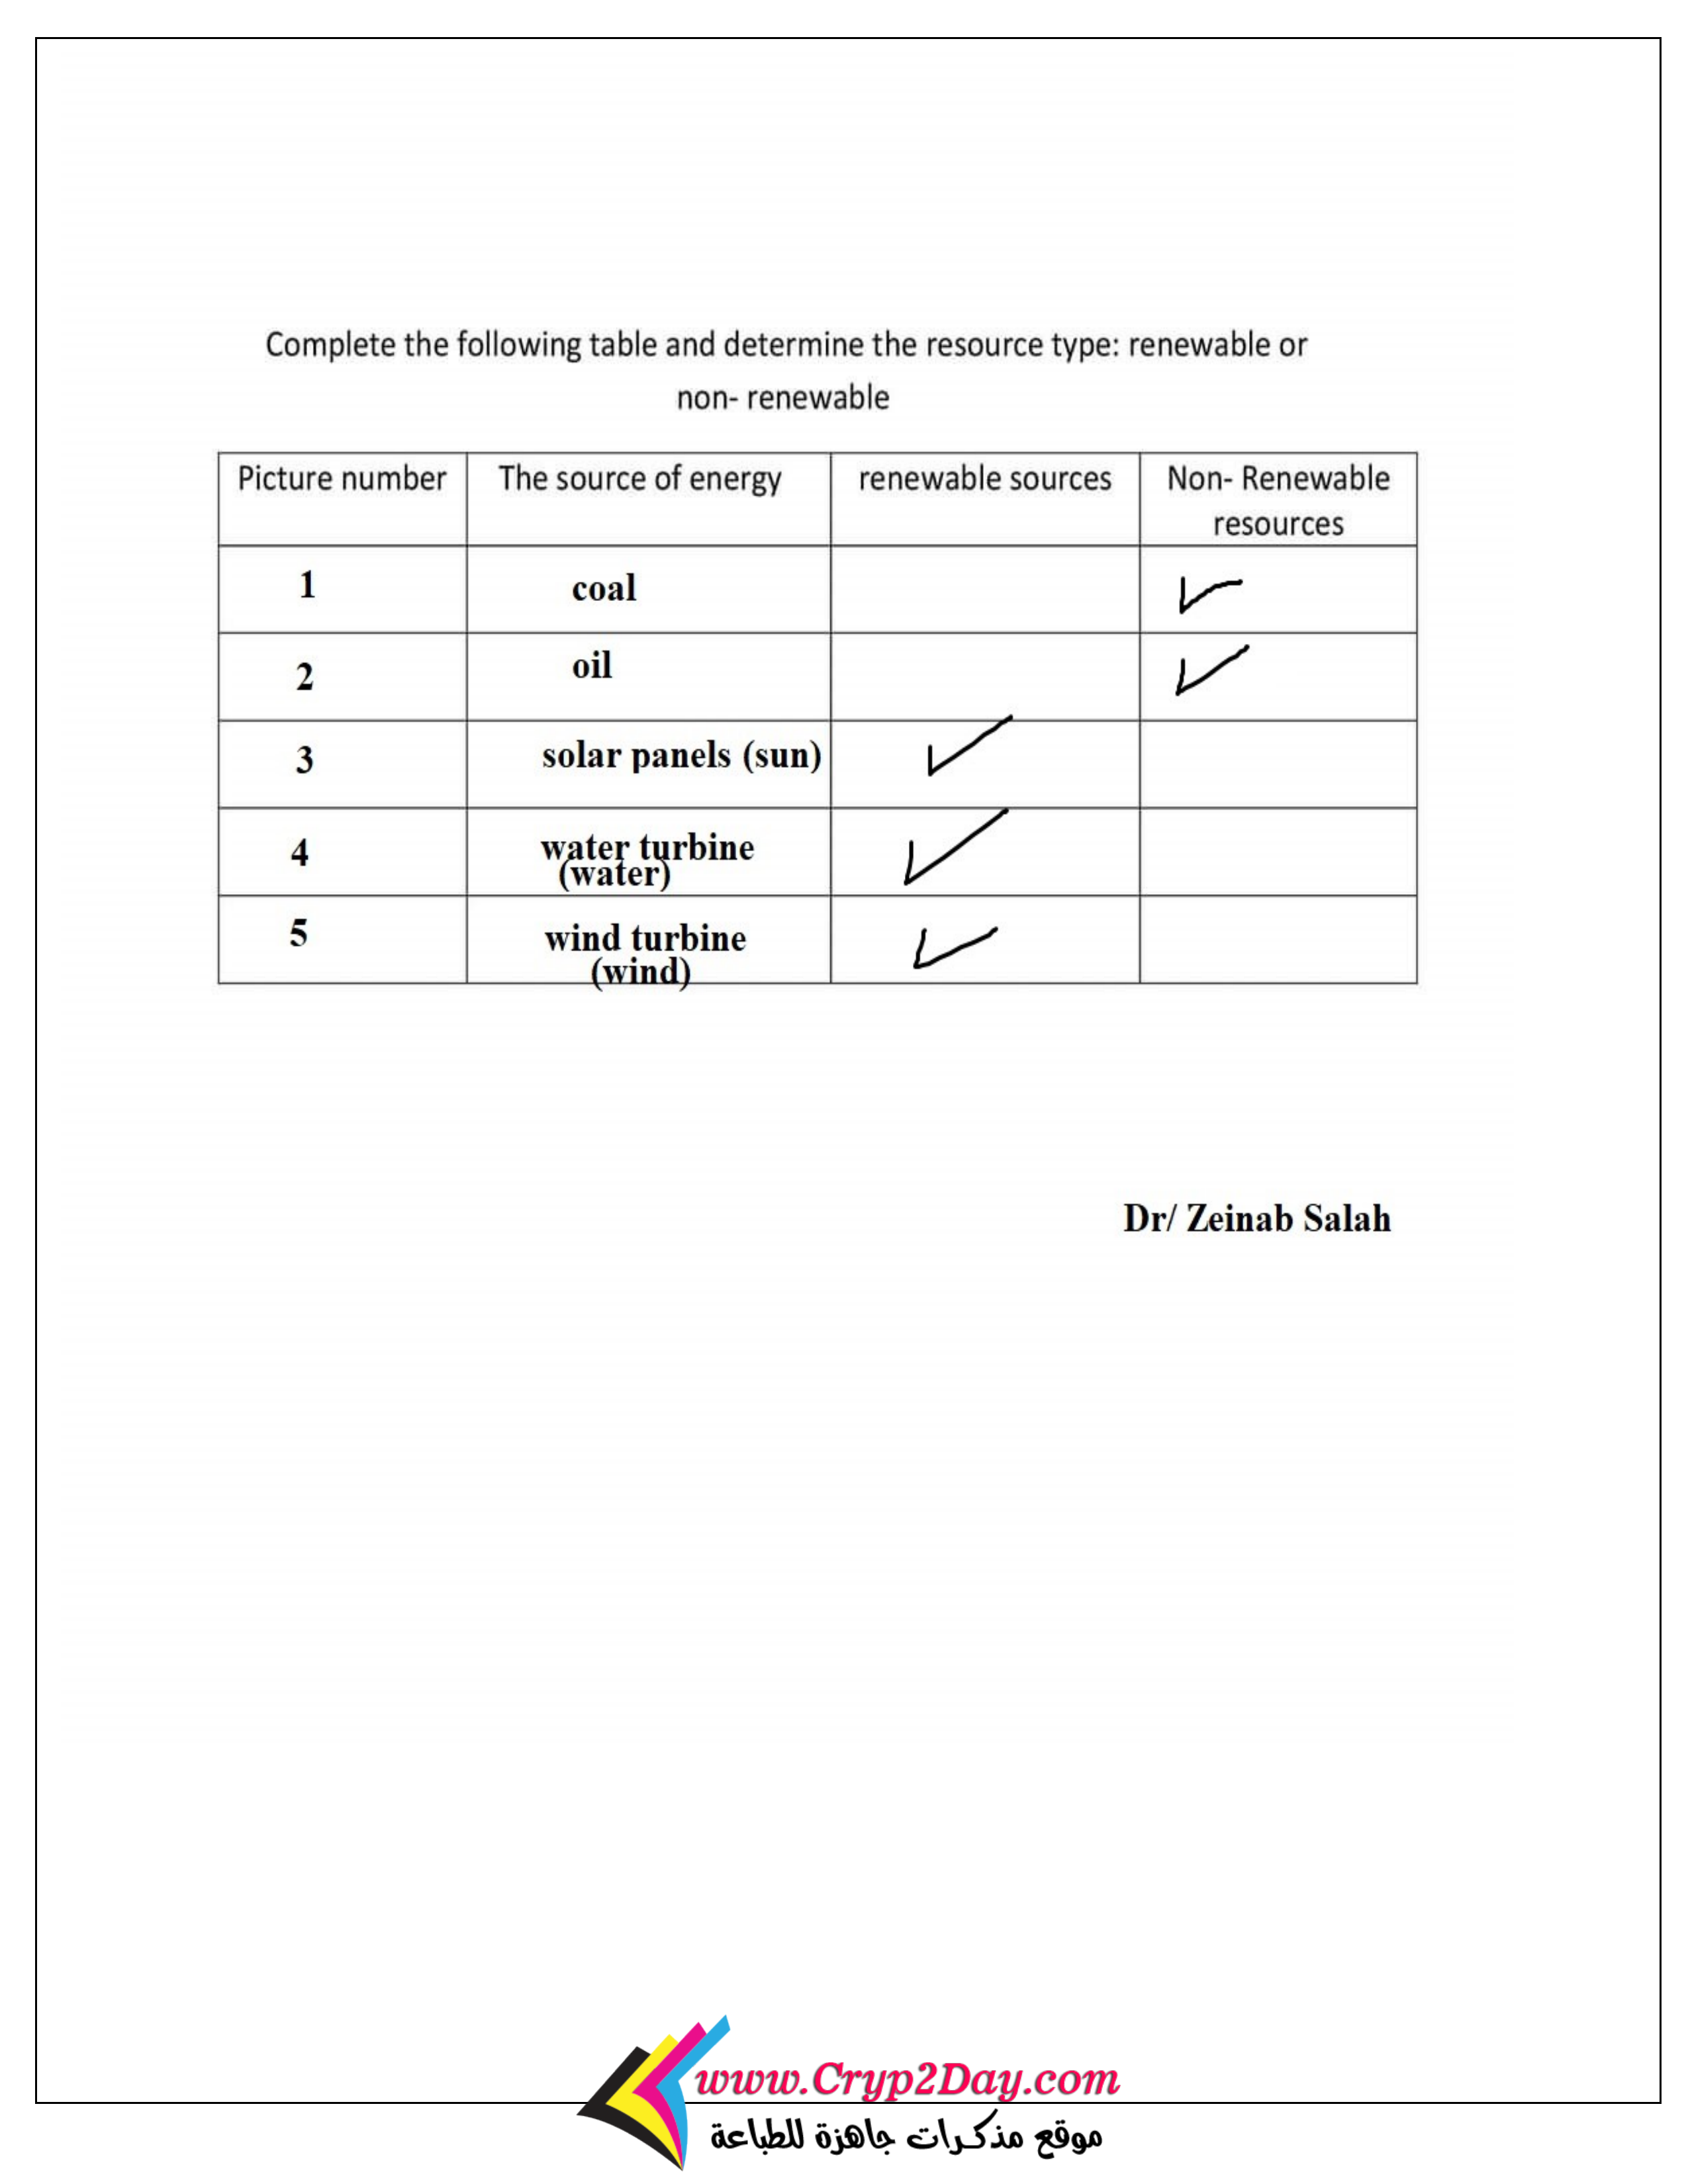 Complete the following table and determine the resource type: renewable or
non- renewable
Picture number The source of energy renewable sources Non- Renewable
resources
1 coal ✓
2 oil ✓
3 solar panels (sun) ✓
4 water turbine
(water) ✓
5 wind turbine
(wind) ✓
Dr/ Zeinab Salah
www.Cryp2Day.com
موقع مذكرات جاهزة للطباعة